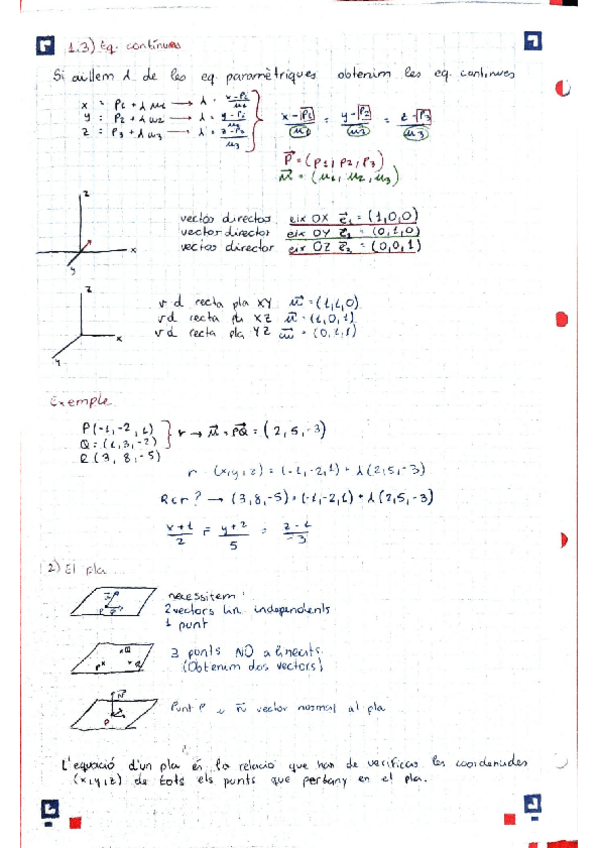 1.3) Eq. contínues
Si aïllem λ de les eq. paramètriques obtenim les eq. contínues
x = P1 + λ u1 → λ = x-P1/u1
y = P2 + λ u2 → λ = y-P2/u2
z = P3 + λ u3 → λ = z-P3/u3
x-P1/u1 = y-P2/u2 = z-P3/u3
P = (P1, P2, P3)
u = (u1, u2, u3)
z
x
y
vector director eix OX e1 = (1,0,0)
vector director eix OY e2 = (0,1,0)
vector director eix OZ e3 = (0,0,1)
z
x
y
v d recta pla XY u = (1,1,0)
v d recta pla XZ u = (1,0,1)
v d recta pla YZ u = (0,1,1)
Exemple
P(-1,-2,1)
Q = (1,3,-2)
R(3,8,-5)
r → u = PQ = (2,5,-3)
r (x,y,z) = (-1,-2,1) + λ(2,5,-3)
R∈r? → (3,8,-5) = (-1,-2,1) + λ(2,5,-3)
x+1/2 = y+2/5 = z-1/-3
2) El pla
necessitem
2 vectors lin. independents
1 punt
3 punts NO alineats
(Obtenim dos vectors)
Punt P n vector normal al pla
L'equació d'un pla és la relació que han de verificar les coordenades
(x,y,z) de tots els punts que pertany en el pla.